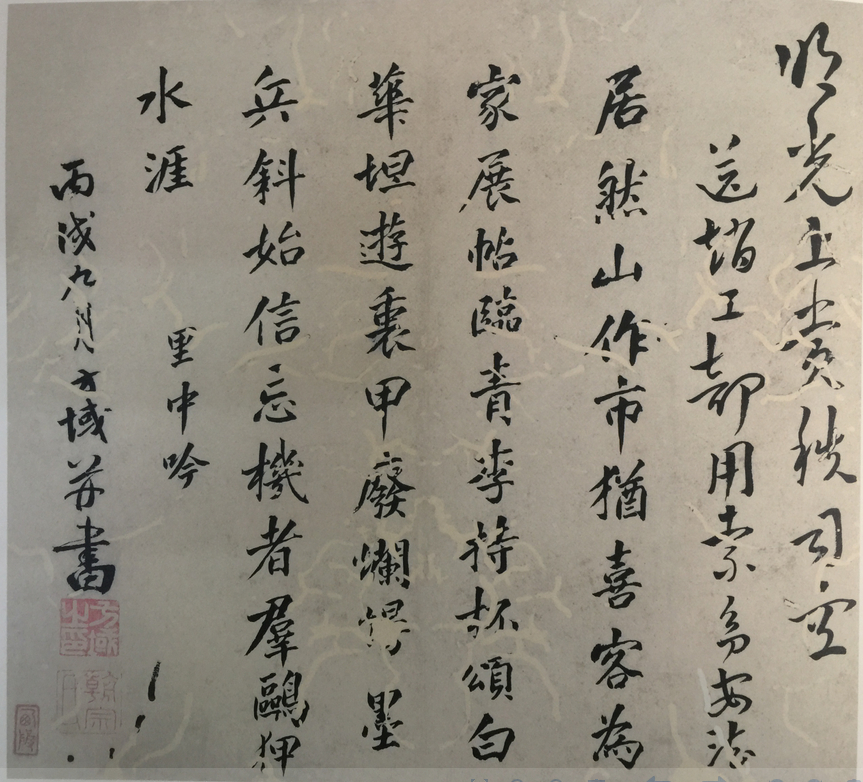 明光上賞秩司空
送趙工部用素家安
居然山作市猶喜客為
家展帖臨青李持杯頌白
華坦遊裏甲廢爛錦墨
兵斜始信忘機者羣鷗狎
水涯
里中吟
丙戌九月方域并書